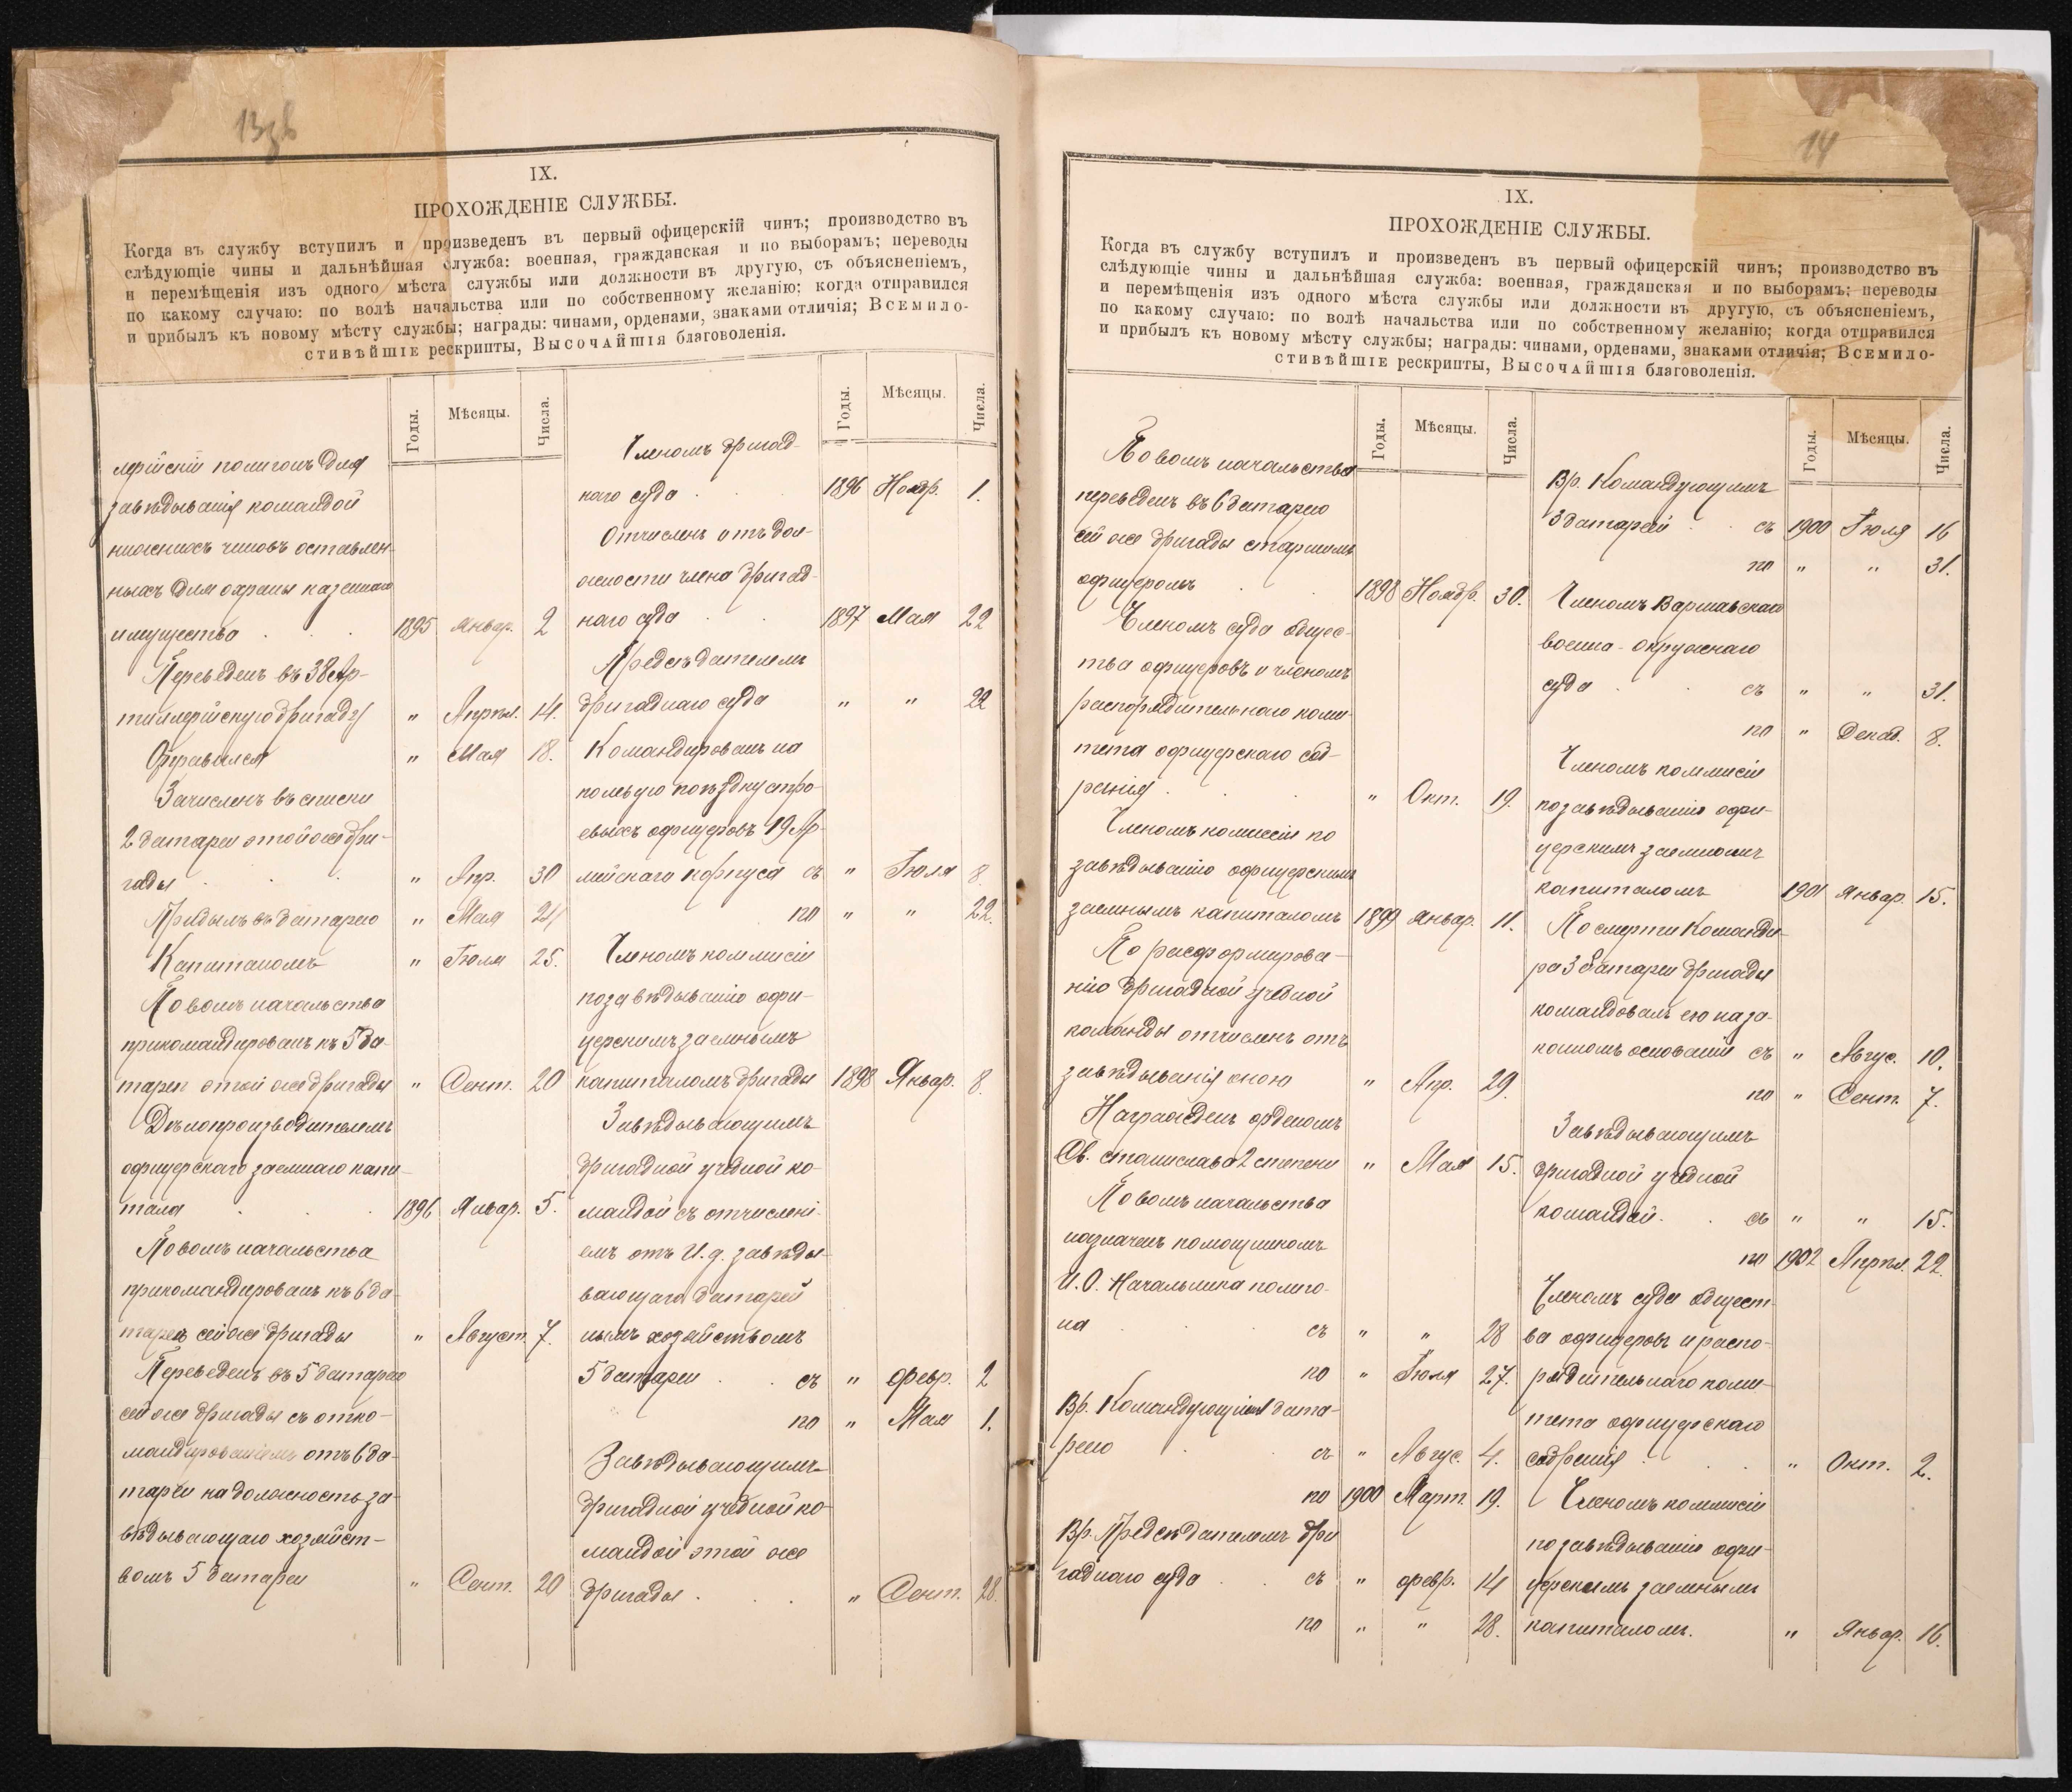 13об
IX.
ПРОХОЖДЕНІЕ СЛУЖБЫ.
Когда въ службу вступилъ и произведенъ въ первый офицерскій чинъ; производство въ
слѣдующіе чины и дальнѣйшая служба: военная, гражданская и по выборамъ; переводы
и перемѣщенія изъ одного мѣста службы или должности въ другую, съ объясненіемъ,
по какому случаю: по волѣ начальства или по собственному желанію; когда отправился
и прибылъ къ новому мѣсту службы; награды: чинами, орденами, знаками отличія; Всемило-
стивѣйшіе рескрипты, Высочайшія благоволенія.
Годы. Мѣсяцы. Числа.
лерійскій полигонъ для
завѣдыванія командой
нижнихъ чиновъ оставлен-
ныхъ для охраны казеннаго
имущества . . . 1895 Январ. 2
Переведенъ въ 38 Ар-
тиллерійскую бригаду " Апрѣл. 14.
Отправился " Мая 18.
Зачисленъ въ списки
2 батареи этой же бри-
гады . . . " Апр. 30
Прибылъ въ батарею " Мая 24
Капитаномъ " Іюля 25.
По волѣ начальства
прикомандированъ къ 5 ба-
тареи этой же бригады " Сент. 20
Дѣлопроизводителемъ
офицерскаго заемнаго капи-
тала . . . 1896 Январ. 5.
По волѣ начальства
прикомандированъ къ 6 ба-
тареи сей же бригады " Август. 7.
Переведенъ въ 5 батарею
сей же бригады съ отко-
мандированіемъ отъ 6 ба-
тареи на должность за-
вѣдывающаго хозяйст-
вомъ 5 батареи " Сент. 20
Годы. Мѣсяцы. Числа.
Членомъ бригад-
наго суда . . 1896 Ноябр. 1.
Отчисленъ отъ дол-
жности члена бригад-
наго суда . . 1897 Мая 22
Предсѣдателемъ
бригаднаго суда " " 22
Командированъ на
полевую поѣздку стро-
евыхъ офицеровъ 19 Ар-
мейскаго корпуса съ " Іюля 8.
по " " 22.
Членомъ коммисіи
по завѣдыванію офи-
церскимъ заемнымъ
капиталомъ бригады 1898 Январ. 8.
Завѣдывающимъ
бригадной учебной ко-
мандой съ отчислені-
емъ отъ И. д. завѣды-
вающаго батарей-
нымъ хозяйствомъ
5 батареи . . съ " Февр. 2
по " Мая 1.
Завѣдывающимъ
бригадной учебной ко-
мандой этой же
бригады . . . " Сент. 28.
14
IX.
ПРОХОЖДЕНІЕ СЛУЖБЫ.
Когда въ службу вступилъ и произведенъ въ первый офицерскій чинъ; производство въ
слѣдующіе чины и дальнѣйшая служба: военная, гражданская и по выборамъ; переводы
и перемѣщенія изъ одного мѣста службы или должности въ другую, съ объясненіемъ,
по какому случаю: по волѣ начальства или по собственному желанію; когда отправился
и прибылъ къ новому мѣсту службы; награды: чинами, орденами, знаками отличія; Всемило-
стивѣйшіе рескрипты, Высочайшія благоволенія.
Годы. Мѣсяцы. Числа.
По волѣ начальства
переведенъ въ 6 батарею
сей же бригады старшимъ
офицеромъ . . 1898 Ноябр. 30.
Членомъ суда общес-
тва офицеровъ и членомъ
распорядительнаго коми-
тета офицерскаго соб-
ранія . . . " Окт. 19.
Членомъ комиссіи по
завѣдыванію офицерскимъ
заемнымъ капиталомъ 1899 Январ. 11.
По расформирова-
нію бригадной учебной
команды отчисленъ отъ
завѣдыванія оною " Апр. 29.
Награжденъ орденомъ
Св. Станислава 2 степени " Мая 15.
По волѣ начальства
назначенъ помощникомъ
И. О. Начальника полиго-
на . . . съ " " 28
по " Іюля 27.
Вр. Командующій бата-
реею . . съ " Авгус. 4.
по 1900 Март. 19.
Вр. Предсѣдателемъ бри
гаднаго суда . . съ " Февр. 14
по " " 28.
Годы. Мѣсяцы. Числа.
Вр. Командующимъ
3 батареей . . съ 1900 Іюля 16
по " " 31.
Членомъ Варшавскаго
военно-окружнаго
суда . . съ " " 31.
по " Декаб. 8.
Членомъ коммисіи
по завѣдыванію офи-
церскимъ заемнымъ
капиталомъ 1901 Январ. 15.
По смерти Команди-
ра 3 батареи бригады
командовалъ ею на за-
конномъ основаніи съ " Авгус. 10.
по " Сент. 7.
Завѣдывающимъ
бригадной учебной
командой . . съ " " 15.
по 1902 Апрѣл. 22.
Членомъ суда общест-
ва офицеровъ и распо-
рядительнаго коми-
тета офицерскаго
собранія . . . " Окт. 2.
Членомъ коммисіи
по завѣдыванію офи-
церскимъ заемнымъ
капиталомъ. " Январ. 16.